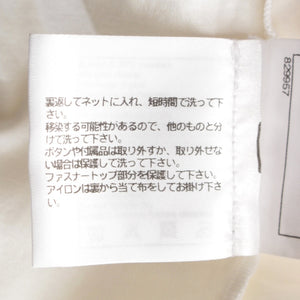 裏返してネットに入れ、短時間で洗って下
さい。
移染する可能性があるので、他のものと分
けて洗って下さい。
ボタンや付属品は取り外すか、取り外せな
い場合は保護して洗って下さい。
ファスナートップ部分を保護して洗って下さい。
アイロンは裏から当て布をしてお掛け下さ
い。
829957